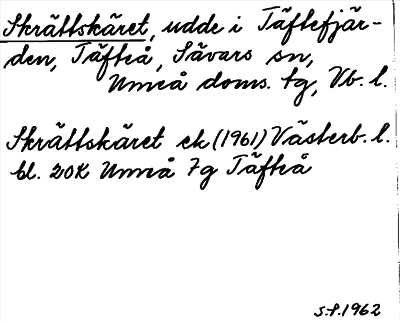 Skrättskäret, udde i Täftefjär-
den, Täfteå, Sävars sn,
Umeå doms. tg, Vb. l.
Skrättskäret ek (1961) Västerb. l.
bl. 20K Umeå 7g Täfteå
S.P. 1962